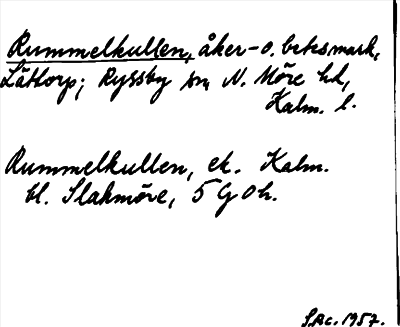 Rummelkullen, åker- o. betesmark,
Låttorp; Ryssby sn, N. Möre hd,
Kalm. l.
Rummelkullen, ek. Kalm.
bl. Slakmöre, 5 G Oh.
SBc. 1957.